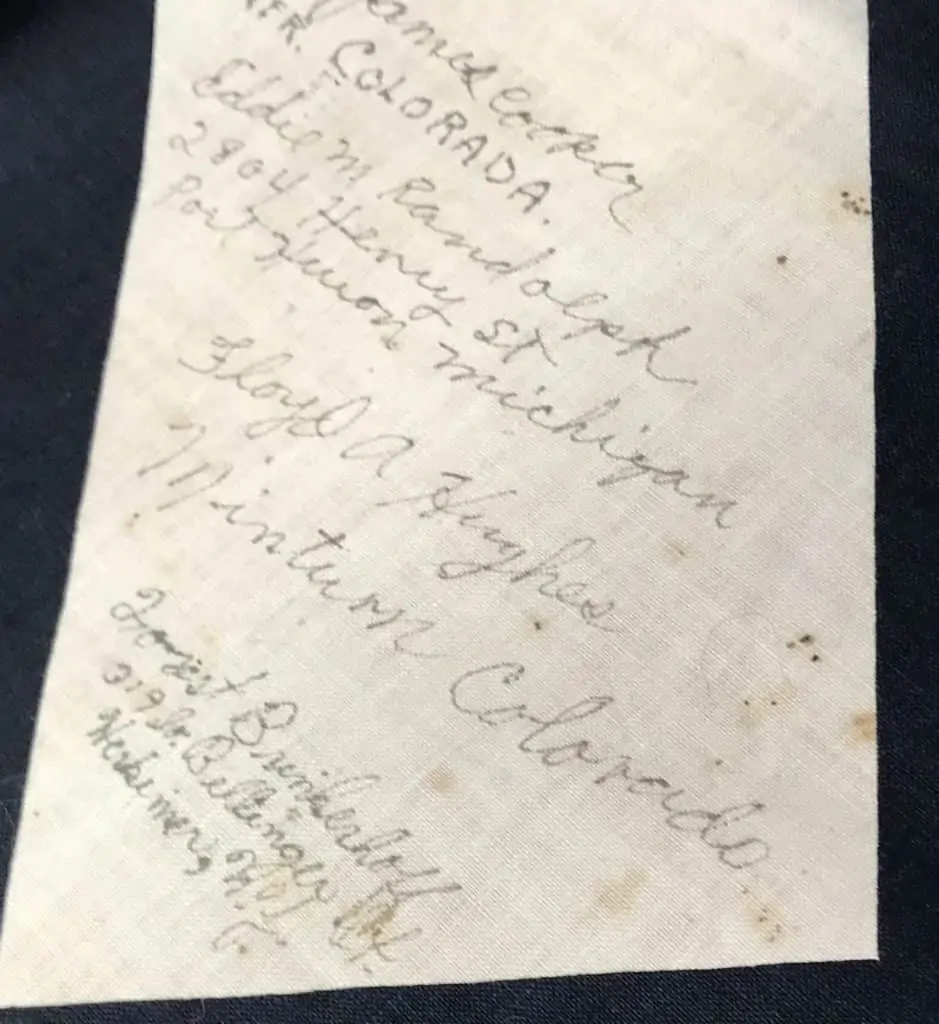 James Cooper
COLORADA.
Eddie M Randolph
2804 Henry St
Port Huron Michigan
Floyd A Hughes
Minturn Colorado
Forest Brinkerhoff
319 So. Bellinger St.
Herkimer, N.Y.